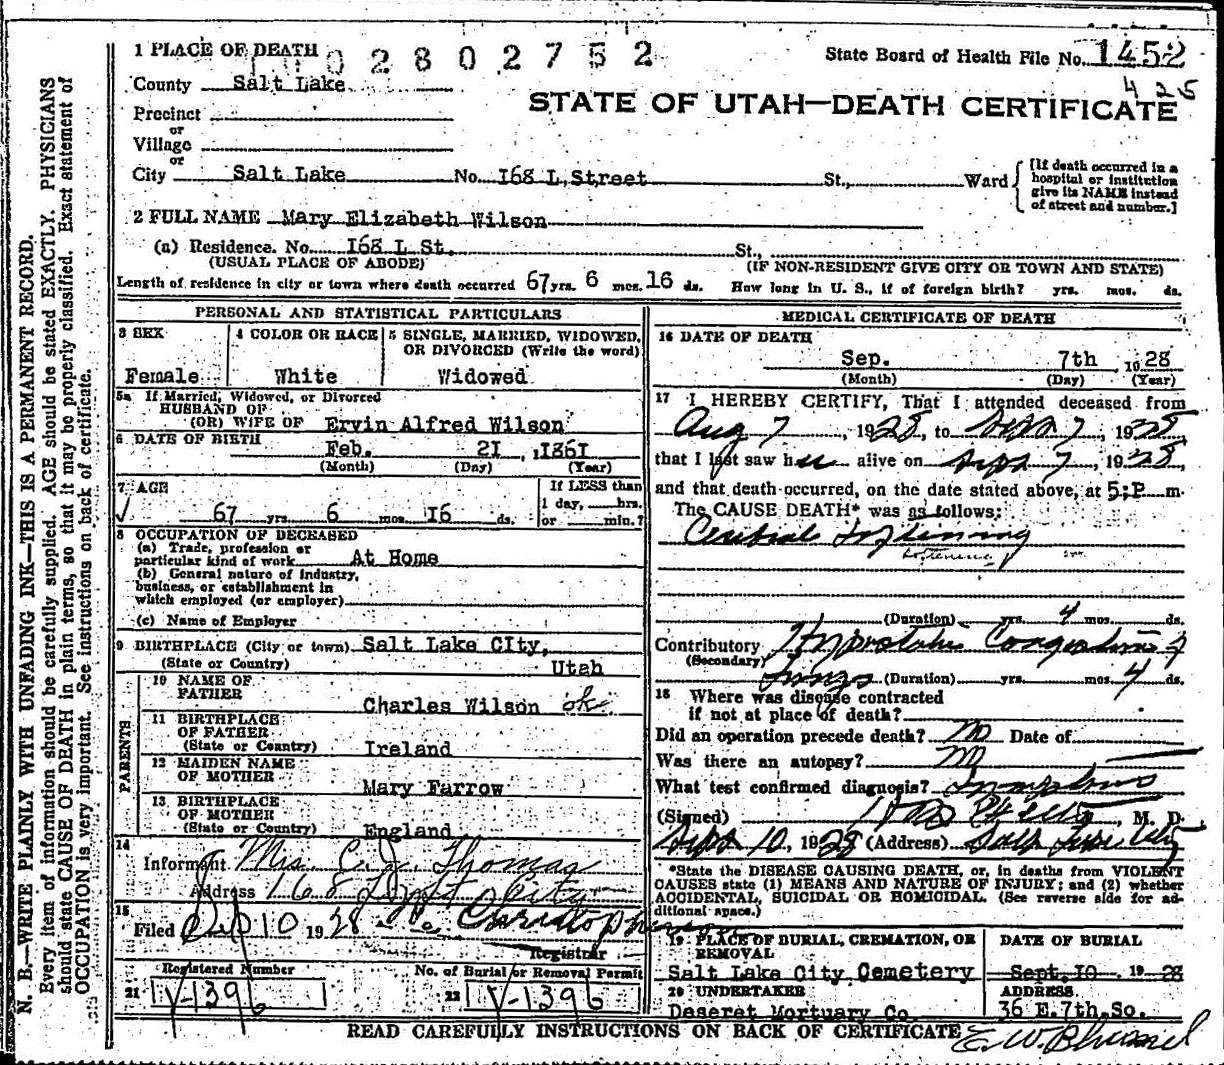 1 PLACE OF DEATH
02802752
State Board of Health File No. 1452
County Salt Lake
425
STATE OF UTAH—DEATH CERTIFICATE
Precinct
or
Village
or
City Salt Lake No. I68 L Street St., Ward
[If death occurred in a
hospital or institution
give its NAME instead
of street and number.]
2 FULL NAME Mary Elizabeth Wilson
(a) Residence. No. I68 L St. St.,
(USUAL PLACE OF ABODE) (IF NON-RESIDENT GIVE CITY OR TOWN AND STATE)
Length of residence in city or town where death occurred 67 yrs. 6 mos. 16 ds. How long in U. S., if of foreign birth? yrs. mos. ds.
PERSONAL AND STATISTICAL PARTICULARS
3 SEX
Female
4 COLOR OR RACE
White
5 SINGLE, MARRIED, WIDOWED,
OR DIVORCED (Write the word)
Widowed
5a If Married, Widowed, or Divorced
HUSBAND OF
(OR) WIFE OF Ervin Alfred Wilson
6 DATE OF BIRTH
Feb. 2I, I86I
(Month) (Day) (Year)
7 AGE
67 yrs. 6 mos. I6 ds.
If LESS than
1 day, hrs.
or min.?
8 OCCUPATION OF DECEASED
(a) Trade, profession or
particular kind of work At Home
(b) General nature of industry,
business, or establishment in
which employed (or employer)
(c) Name of Employer
9 BIRTHPLACE (City or town) Salt Lake CIty,
(State or Country) Utah
PARENTS
10 NAME OF
FATHER
Charles Wilson ok
11 BIRTHPLACE
OF FATHER
(State or Country) Ireland
12 MAIDEN NAME
OF MOTHER
Mary Farrow
13 BIRTHPLACE
OF MOTHER
(State or Country) England
14
Informant Mrs. C. J. Thomas
Address 168 L St City
15
Filed Sep 10 1928
Registrar
Registered Number
21 V-1396
No. of Burial or Removal Permit
22 V-1396
MEDICAL CERTIFICATE OF DEATH
16 DATE OF DEATH
Sep. 7th 1928
(Month) (Day) (Year)
17 I HEREBY CERTIFY, That I attended deceased from
Aug 7, 1928, to Sept 7, 1928
that I last saw her alive on Sept 7, 1928
and that death occurred, on the date stated above, at 5:P m.
The CAUSE DEATH* was as follows:
Cerebral Softening
Softening
(Duration) yrs. 4 mos. ds.
Contributory Hypostatic Congestion of
(Secondary)
Lungs (Duration) yrs. mos. 4 ds.
18 Where was disease contracted
if not at place of death?
Did an operation precede death? No Date of
Was there an autopsy? No
What test confirmed diagnosis? Symptoms
(Signed) M. D.
Sept 10, 1928 (Address) Salt Lake City
*State the DISEASE CAUSING DEATH, or, in deaths from VIOLENT
CAUSES state (1) MEANS AND NATURE OF INJURY; and (2) whether
ACCIDENTAL, SUICIDAL OR HOMICIDAL. (See reverse side for ad-
ditional space.)
19 PLACE OF BURIAL, CREMATION, OR
REMOVAL
Salt Lake City Cemetery
DATE OF BURIAL
Sept. I0 1928
20 UNDERTAKER
Deseret Mortuary Co.
ADDRESS
36 E.7th.So.
READ CAREFULLY INSTRUCTIONS ON BACK OF CERTIFICATE
N. B.—WRITE PLAINLY WITH UNFADING INK—THIS IS A PERMANENT RECORD.
Every item of information should be carefully supplied. AGE should be stated EXACTLY. PHYSICIANS
should state CAUSE OF DEATH in plain terms, so that it may be properly classified. Exact statement of
OCCUPATION is very important. See instructions on back of certificate.